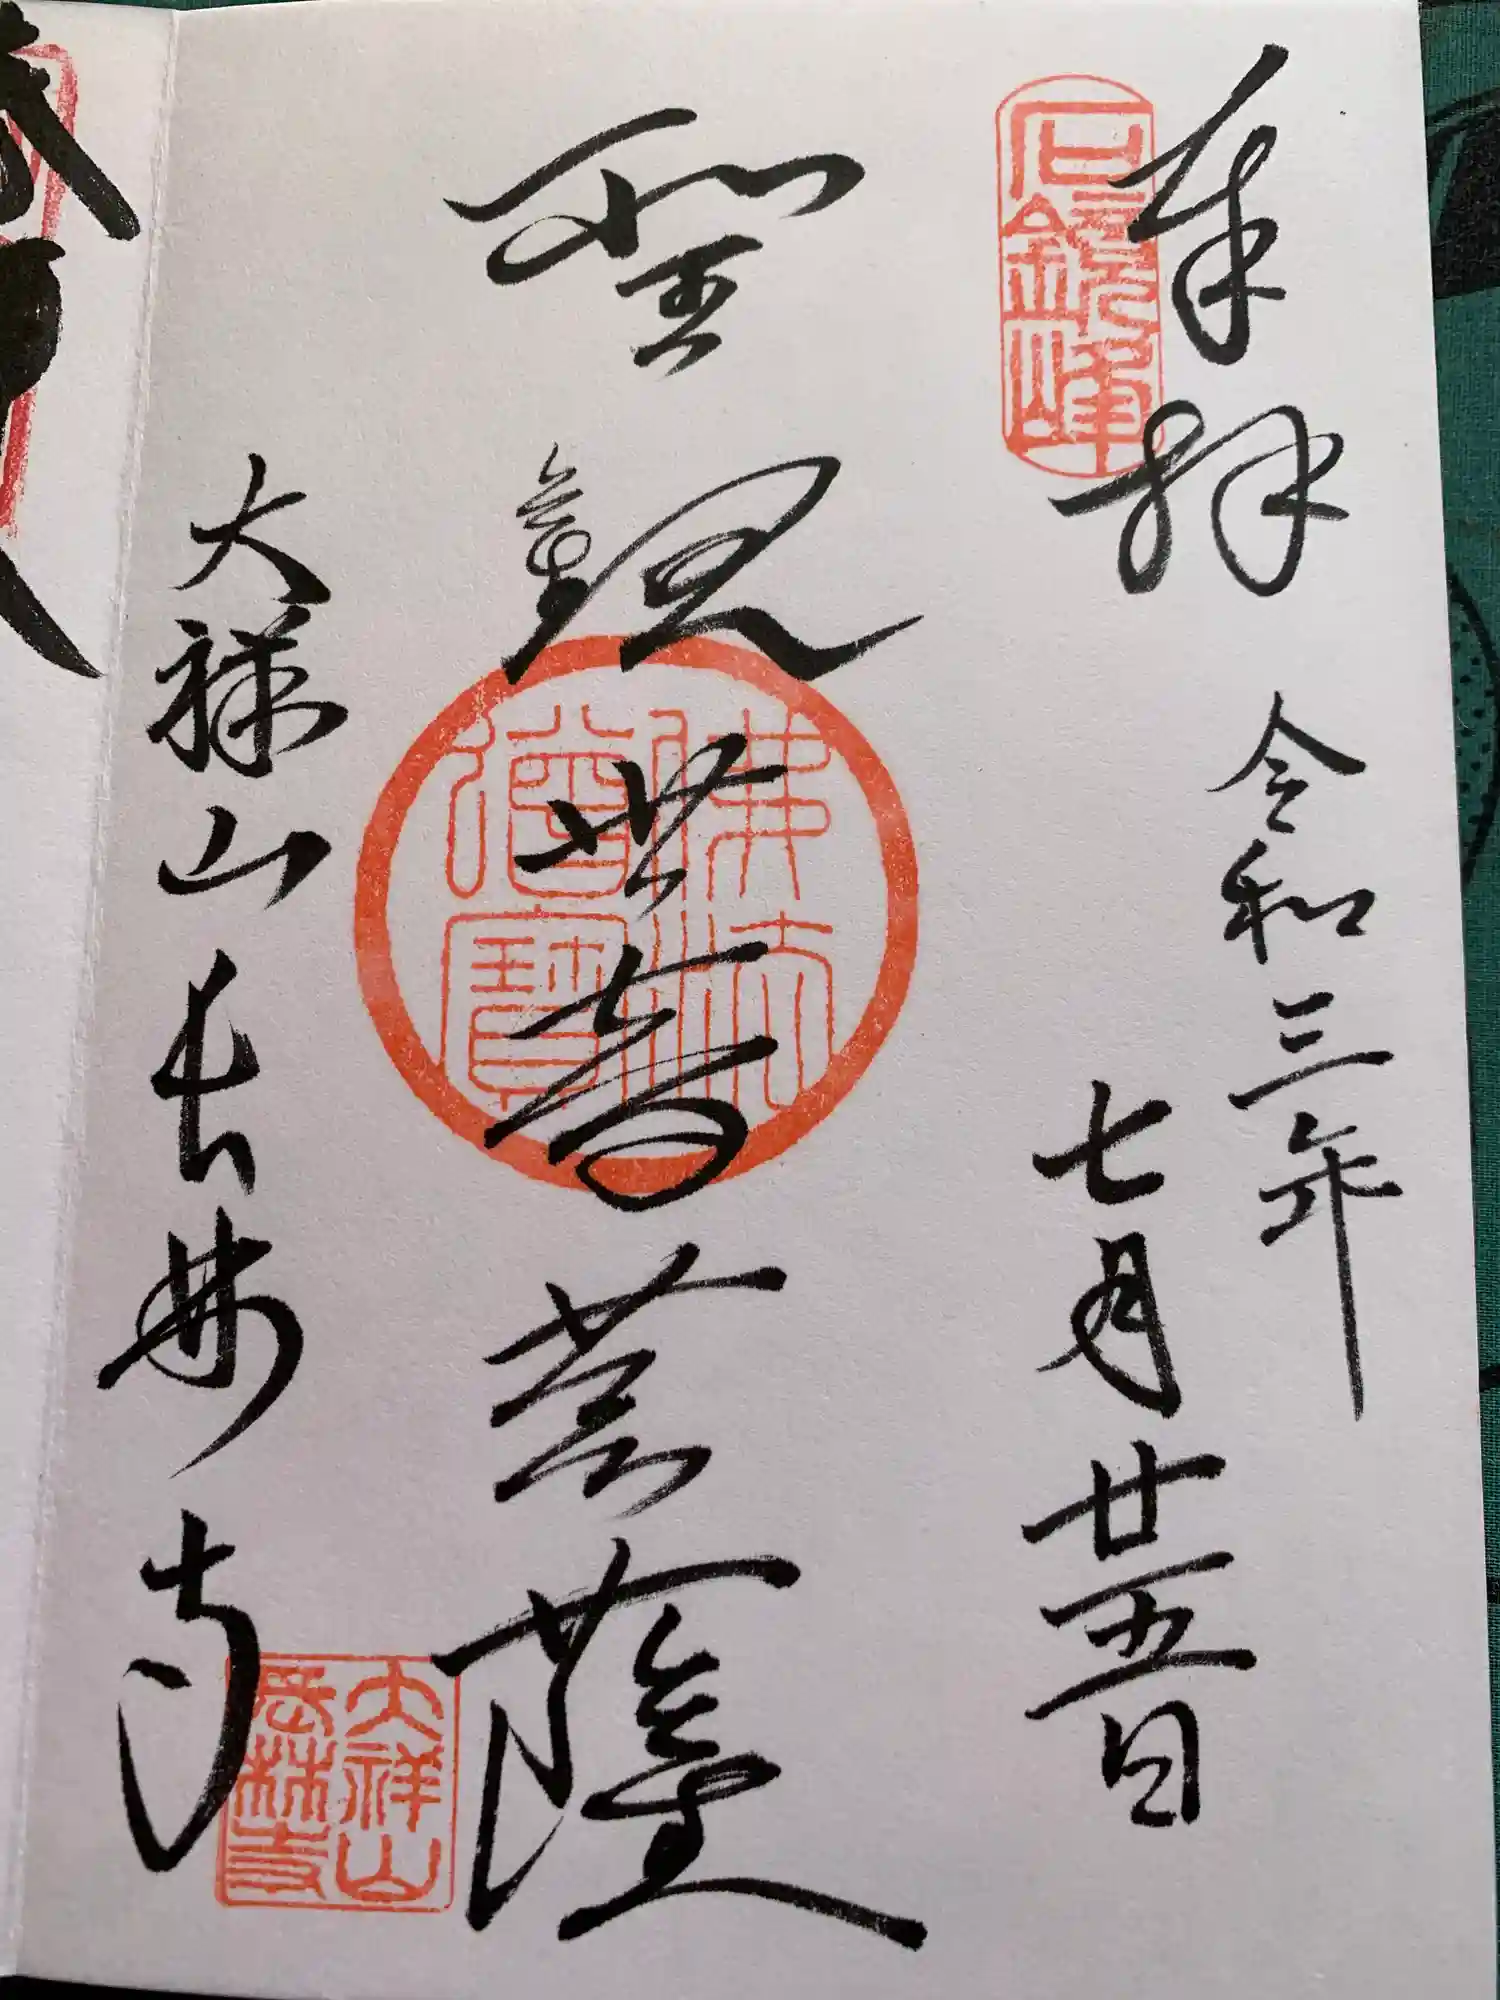 奉拝
石鏡峰
令和三年
七月廿五日
聖観世音菩薩
佛法
僧寳
大祥山長林寺
大祥山
長林寺